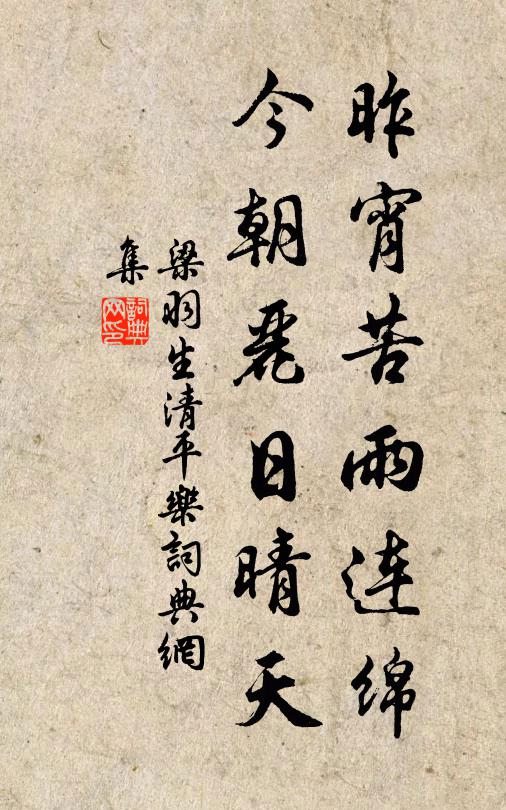 昨宵苦雨连绵
今朝麗日晴天
梁羽生清平樂詞典網
集
詞典
网印